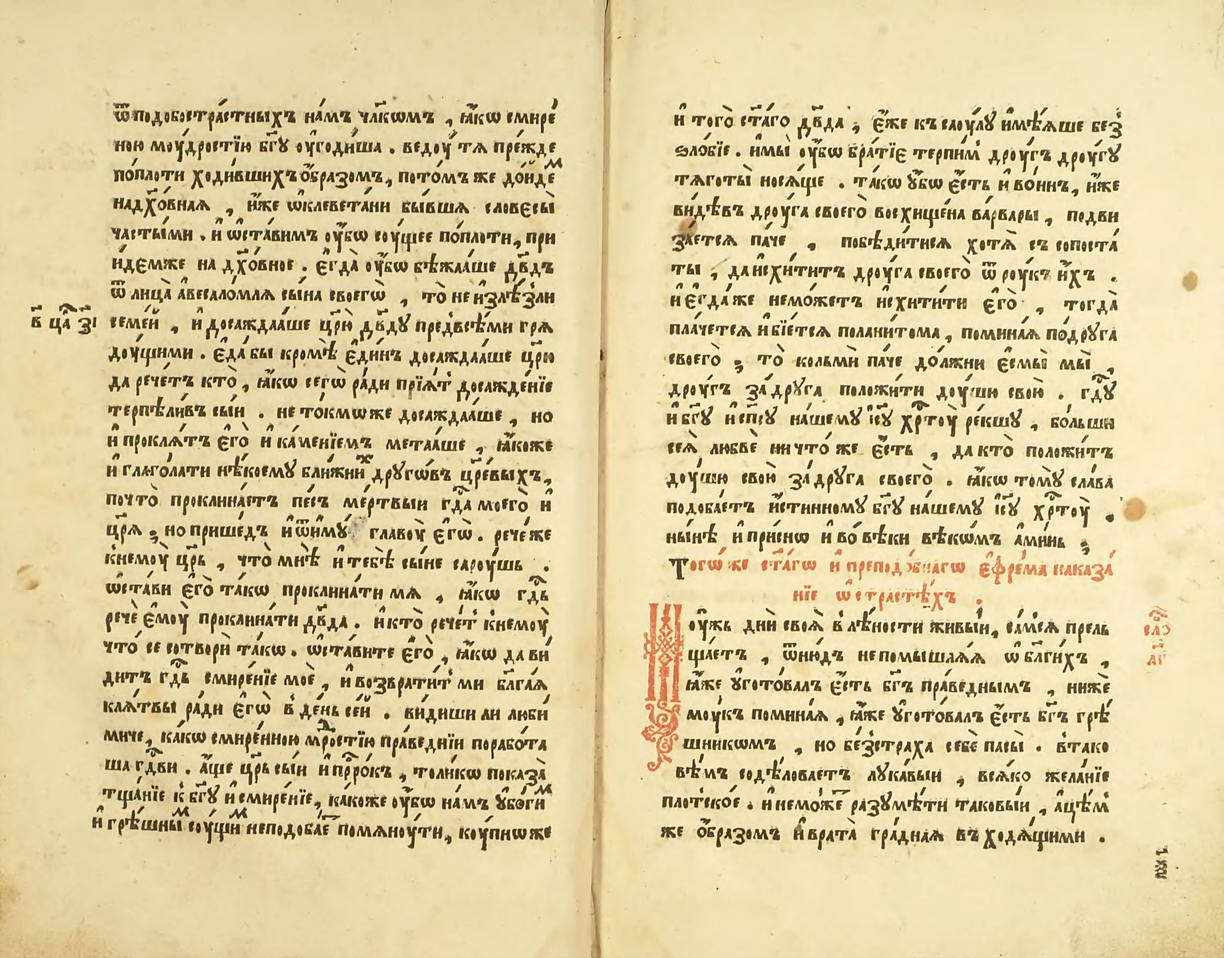 ѿподобострастныхъ намъ чл҃комъ , ꙗкѡ смире
ною моудростїю бг҃у оугодиша . ведоу тѧ прежде
поплоти ходившихъ образомъ, потомъ же дойдем
надх҃овнаѧ , иже ѡклеветани бывшѧ словесы
частыми . и ѡставимъ оубѡ соущее поплоти, при
идемже на дх҃овное . егда оубѡ бѣжааше дв҃дъ
ѿ лица авесаломлѧ сына своегѡ , то не излѣзли
в҃ ца҃ зı҃
семей , и досаждааше цр҃ю дв҃ду предвсѣми грѧ
доущими . еда бы кромѣ единъ досаждааше цр҃ю
да речетъ кто , ꙗкѡ сегѡ ради прїѧт досажденїе
терпѣливъ сыи . не токмѡже досаждааше , но
и проклѧтъ его и каменїемъ металше , ꙗкоже
и глаголати нѣкоему ближних другѡвъ цр҃евыхъ,
почто проклинаетъ песъ мертвыи гд҃а моего и
цр҃ѧ ; но пришедъ иѿиму главоу егѡ . рече же
кнемоу цр҃ь , что мнѣ и тебѣ сыне сароушь .
ѡстави его такѡ проклинати мѧ , ꙗкѡ гд҃ь
рече емоу проклинати дв҃да . и кто речет кнемоу
что се сотвори такѡ . ѡставите его , ꙗкѡ да ви
дитъ гд҃ь смиренїе мое , и возвратит ми бл҃гаѧ
клѧтвы ради егѡ в день сей . видиши ли люби
миче, какѡ смиренною мдростїю праведнїи поработа
ша гд҃ви . аще цр҃ь сыи и прр҃окъ , толикѡ показа
тщанїе к бг҃у и смиренїе, какоже оубѡ намъ убогим
и грѣшным соущим неподобае помѧноути, коупнѡже
и того ст҃аго дв҃да , еже къ саоулу имѣѧше без
злобїе . имы оубѡ братїе терпим другъ другу
тѧготы носѧще . такѡ убѡ есть и воинъ, иже
видѣвъ дроуга своего восхищена варвары , подви
заетсѧ паче , побѣдитисѧ хотѧ съ сопоста
ты , да исхититъ дроуга своего ѿ роукъ ихъ .
и егда же неможетъ исхитити его , тогда
плачетсѧ и бїетсѧ поланитома , поминаѧ подруга
своего ; то кольми паче должни есмы мы ,
дроугъ за друга положити доушю свою . гд҃у
и бг҃у и сп҃су нашему іс҃у хр҃тоу рекшу , больши
сеѧ любве ничто же есть , да кто положитъ
доушю свою за друга своего . ꙗкѡ тому слава
подобаетъ истинному бг҃у нашему іс҃у хр҃тоу .
нынѣ и присно и во вѣки вѣкомъ аминь ;
Тогѡ же ст҃агѡ и преподобнагѡ ефрема наказа
нїе ѡ страстѣхъ .
Моужь дни своѧ в лѣности живыи, самсѧ прель
сло҃ дı҃
щаетъ , ѿнюдъ непомышлѧѧ ѡ бл҃гихъ ,
ꙗже уготовалъ есть бг҃ъ праведнымъ , ниже
моукъ поминаѧ , ꙗже уготовалъ есть бг҃ъ грѣ
шникомъ , но безстраха себе пасы . втако
вѣмъ содѣловаетъ лукавыи , всѧко желанїе
плотское . и неможет разумѣти таковыи , ацѣм
же образомъ и врата граднаѧ въ ходѧщими .